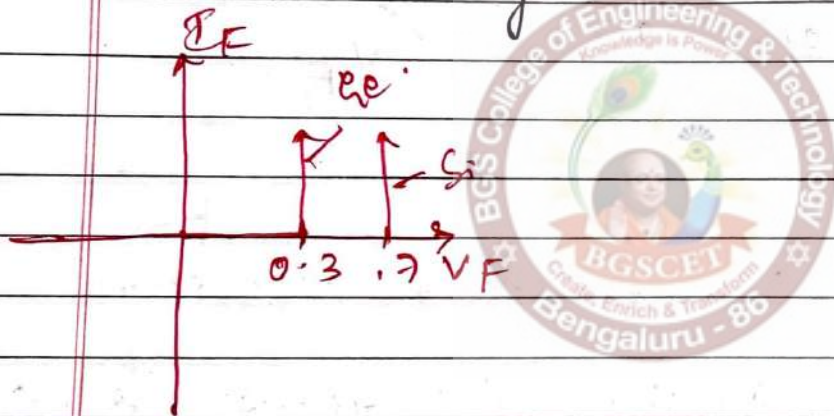 I_F
Ge
Si
0.3 .7 V_F
BGS College of Engineering & Technology
Knowledge is Power
BGSCET
Create, Enrich & Transform
Bengaluru - 86